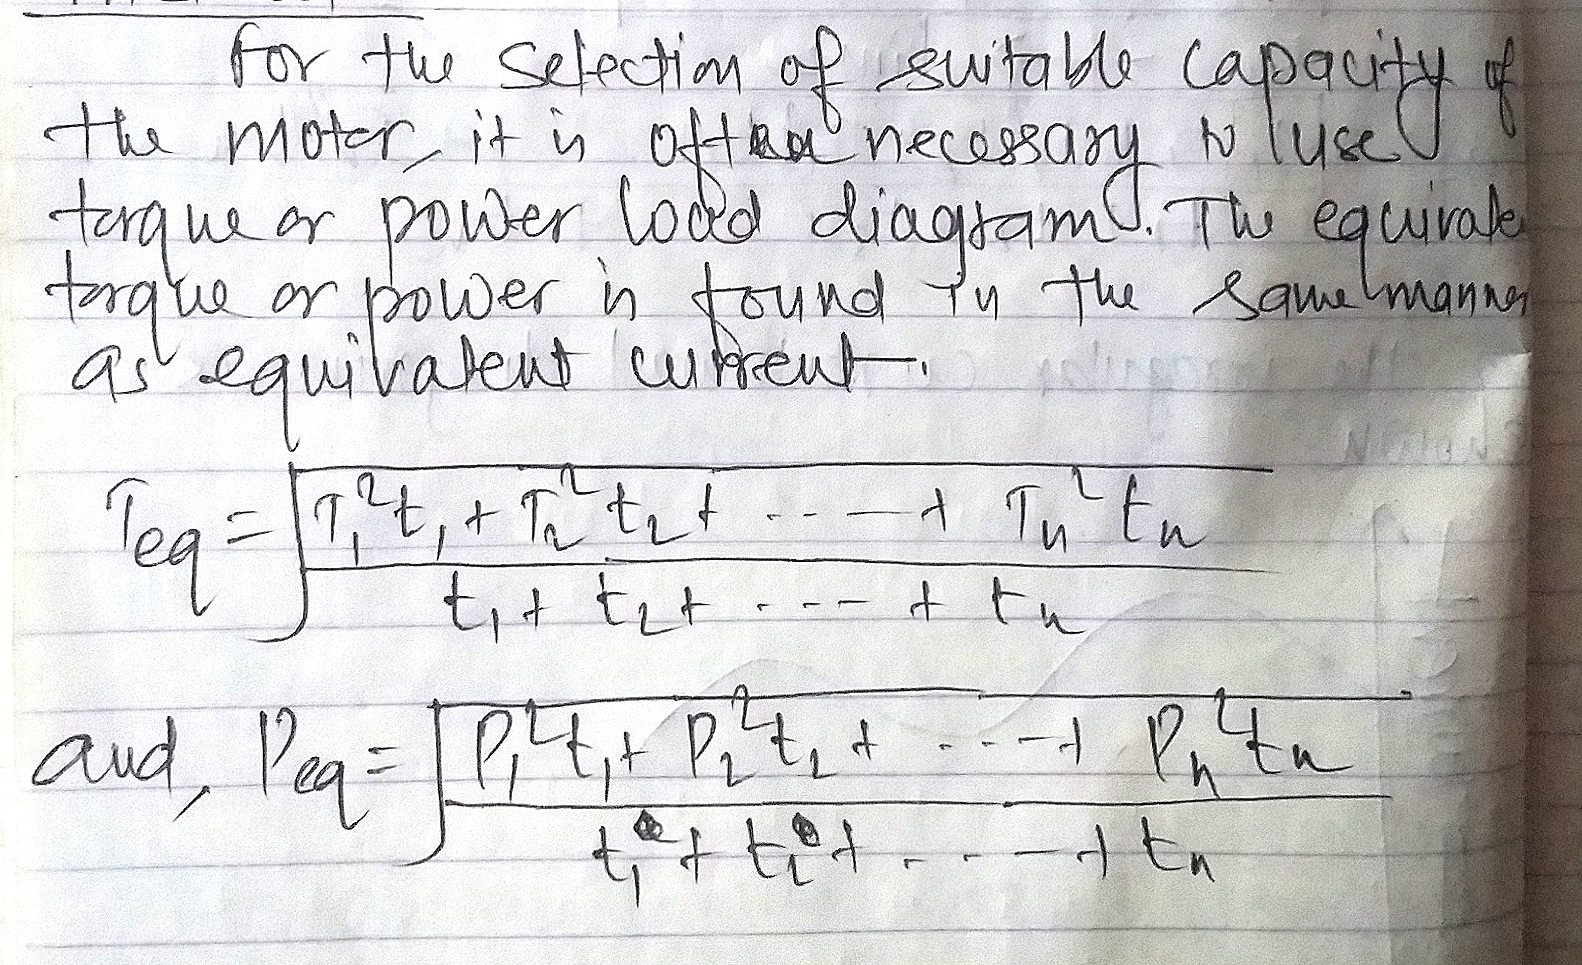 For the selection of suitable capacity of
the motor, it is often necessary to use
torque or power load diagram. The equivale
torque or power is found in the same manner
as equivalent current.
Teq = √(T₁²t₁ + T₂²t₂ + ..-- + Tn²tn / t₁ + t₂ + ..-- + tn)
and, Peq = √(P₁²t₁ + P₂²t₂ + ..-- + Pn²tn / t₁ + t₂ + ..-- + tn)